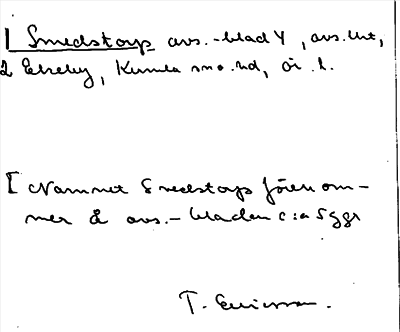 1 Smedstorp avs.-blad 4, avs. likt,
2 Ekeby, Kumla sn o. hd, Ör. l.
[Namnet Smedstorp förekom-
mer å avs.-bladen c:a 5 ggr
T. Ericsson.